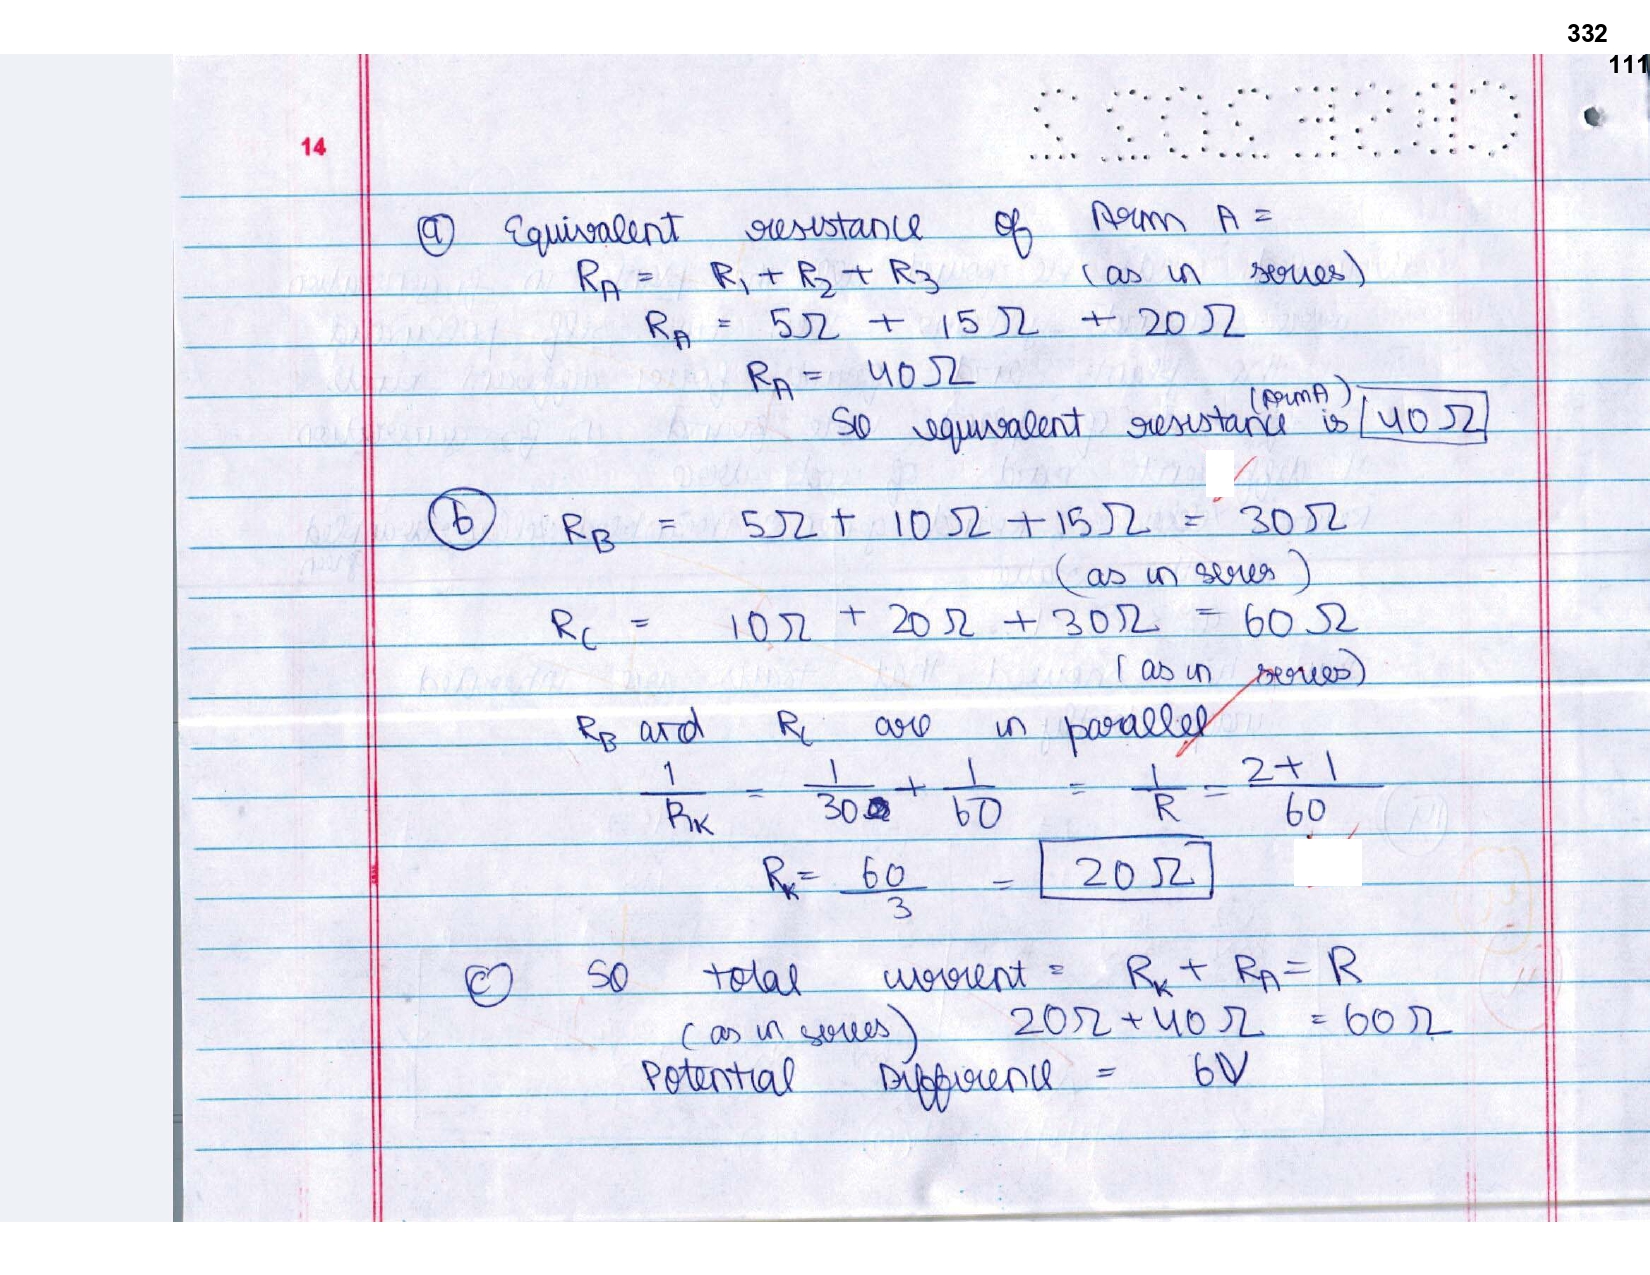 332
111
CBSE 2022
14
(a) Equivalent resistance of Arm A =
R_A = R_1 + R_2 + R_3 (as in series)
R_A = 5Ω + 15Ω + 20Ω
R_A = 40Ω
(Arm A)
So equivalent resistance is 40Ω
(b) R_B = 5Ω + 10Ω + 15Ω = 30Ω
(as in seres)
R_C = 10Ω + 20Ω + 30Ω = 60Ω
(as in series)
R_B and R_C are in parallel
1/R_K = 1/30 + 1/60 = 1/R = 2+1/60
R_K = 60/3 = 20Ω
(c) So total current = R_K + R_A = R
(as in series) 20Ω + 40Ω = 60Ω
Potential Difference = 6V